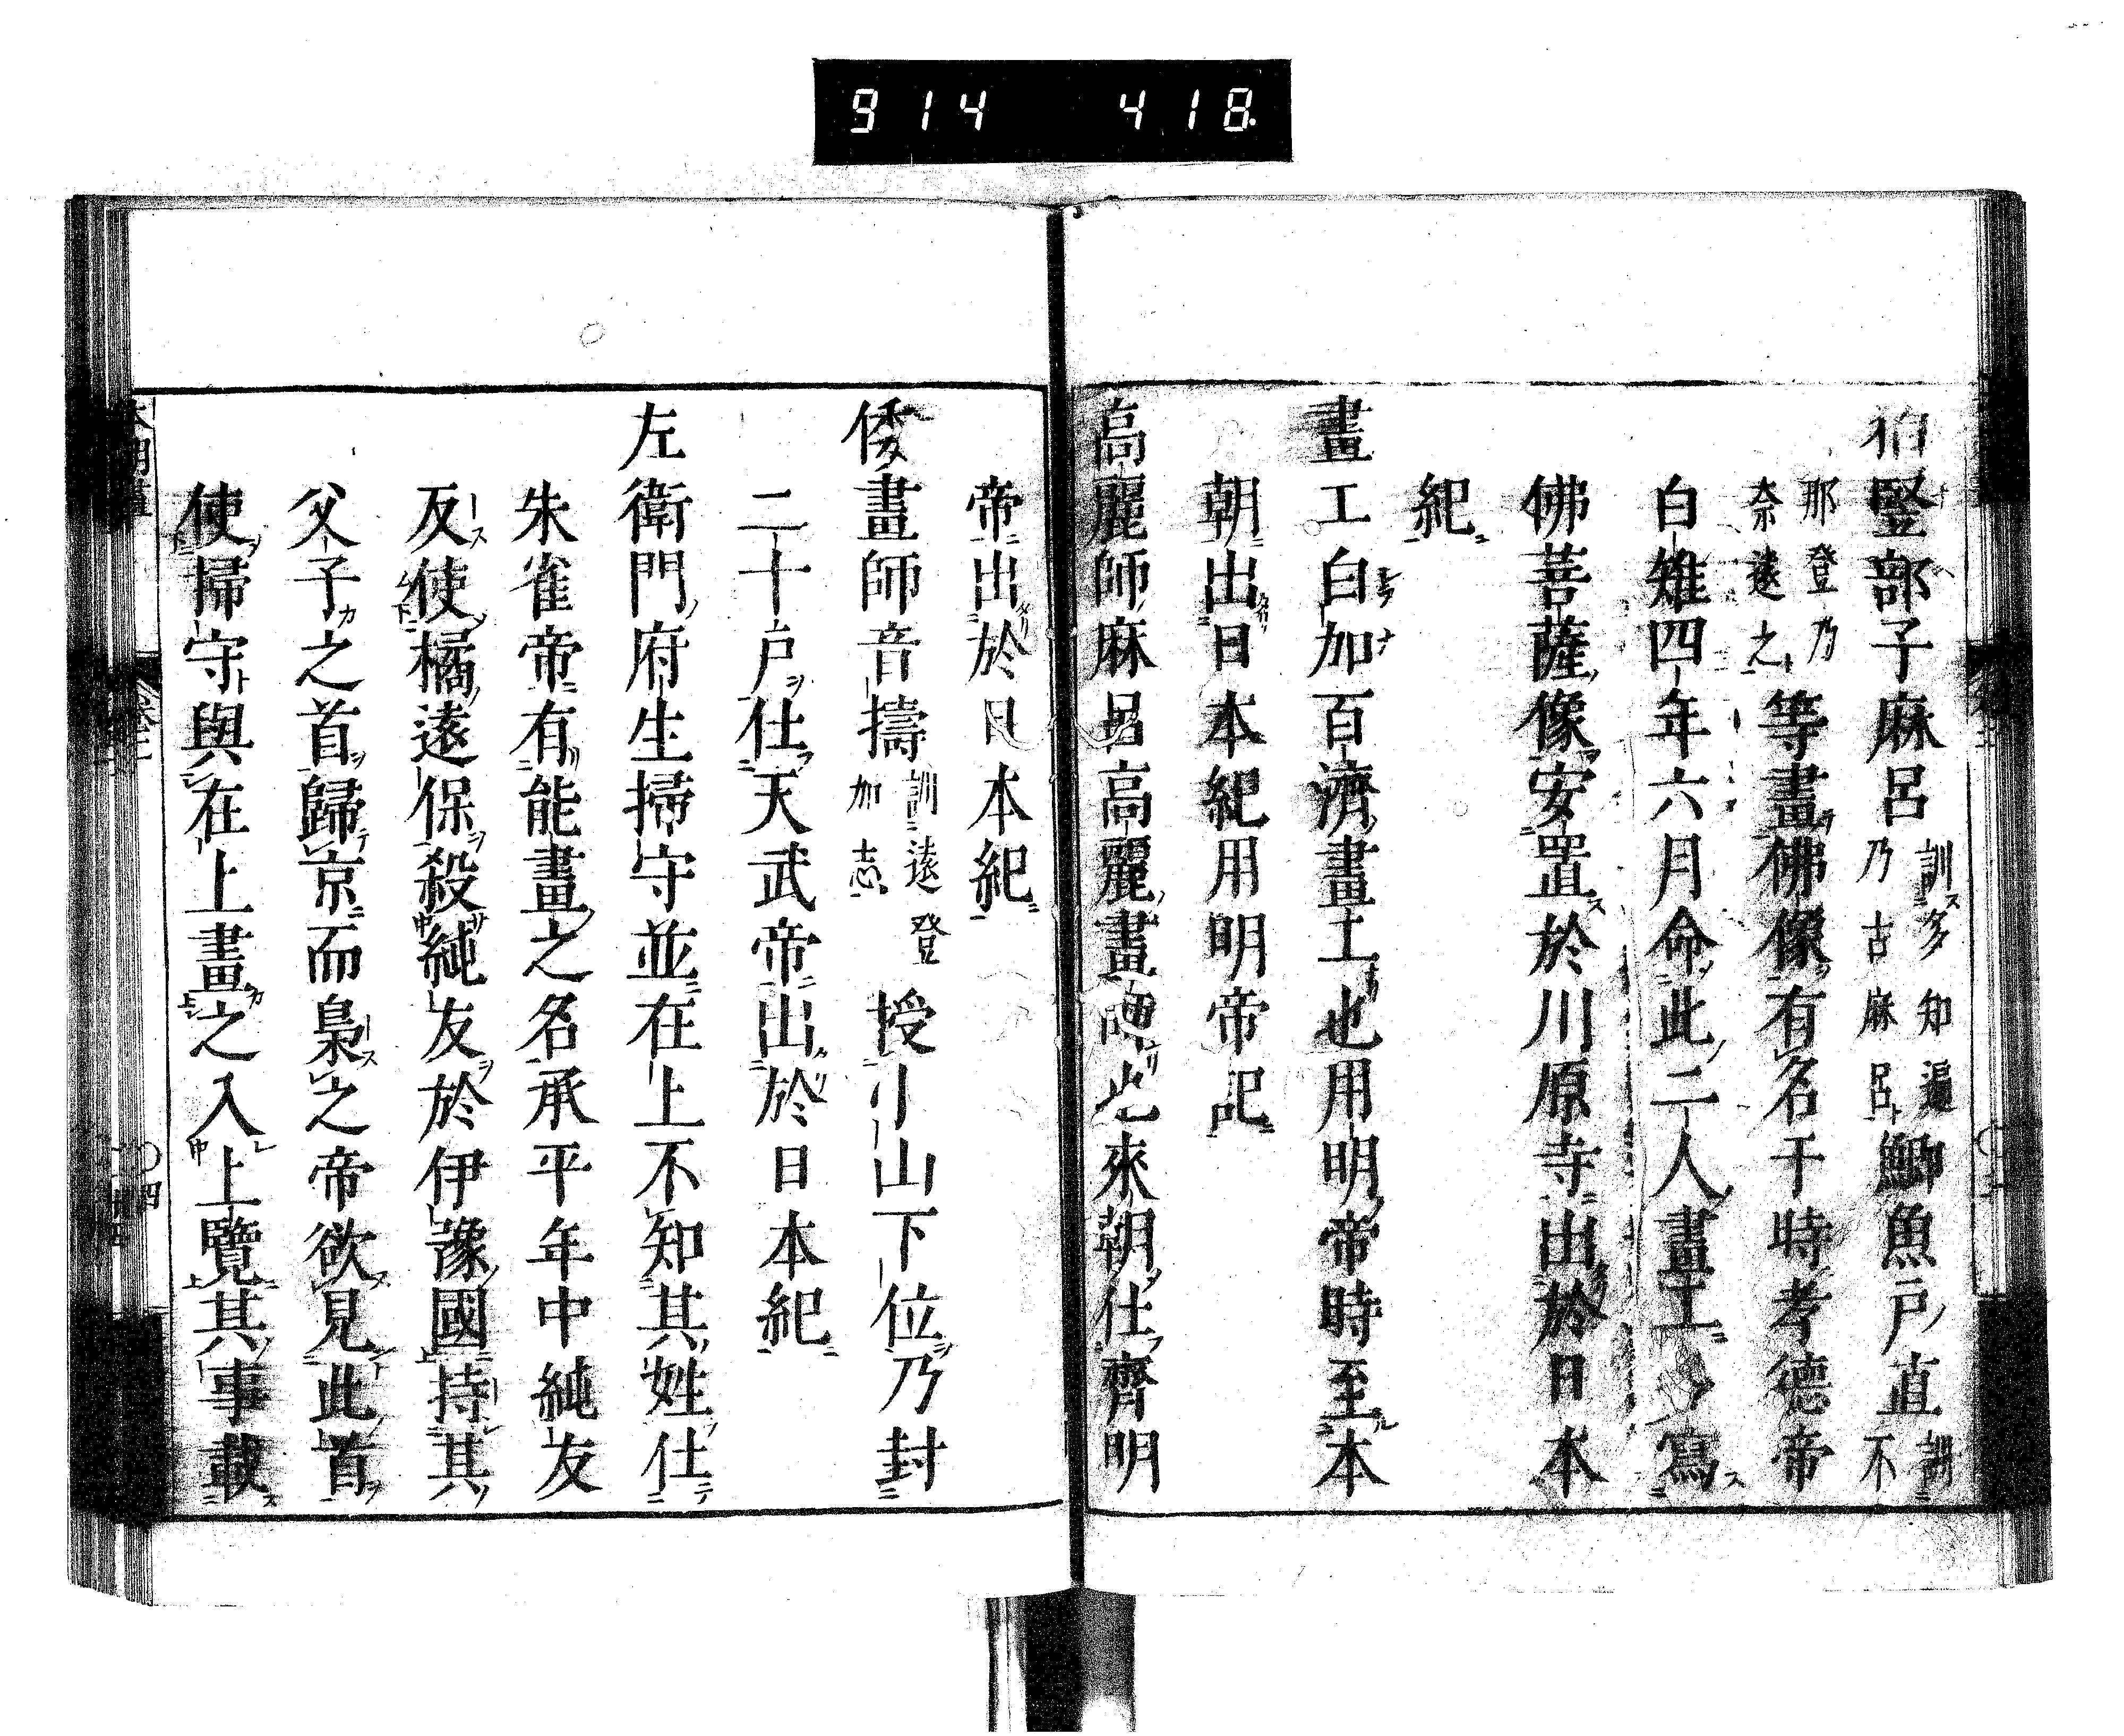 914 418
狛竪部子麻呂訓多知遍乃古麻呂鯽魚戸直訓不
那登乃奈遠之等畫佛像有名于時孝德帝
白雉四年六月命此二人畫工寫
佛菩薩像安置於川原寺出於日本
紀
畫工白加百濟畫工也用明帝時至本
朝出日本紀用明帝記
高麗師麻呂高麗畫師也來朝仕齊明
帝出於日本紀
倭畫師音擣訓遠登加志授小山下位乃封
二十戶仕天武帝出於日本紀
左衛門府生掃守並在上不知其姓仕
朱雀帝有能畫之名承平年中純友
反使橘遠保殺純友於伊豫國持其
父子之首歸京而梟之帝欲見此首
使掃守與在上畫之入上覽其事載